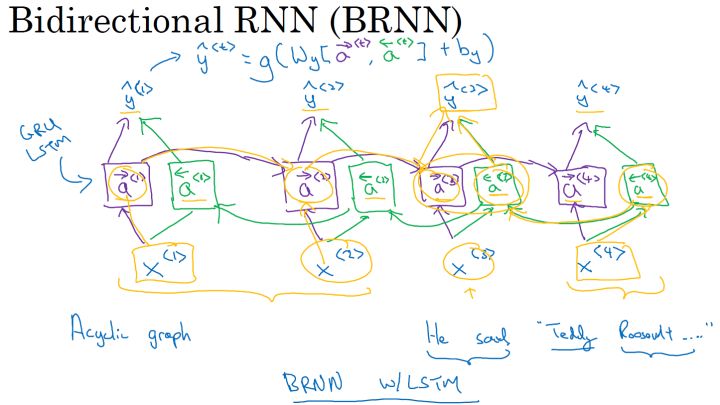 Bidirectional RNN (BRNN)
ŷ<t> = g(Wy[a→<t>, a←<t>] + by)
ŷ<1> ŷ<2> ŷ<3> ŷ<4>
GRU
LSTM
a→<1> a←<1> a→<2> a←<2> a→<3> a←<3> a→<4> a←<4>
x<1> x<2> x<3> x<4>
Acyclic graph He said "Teddy Roosevelt ...."
BRNN w/LSTM